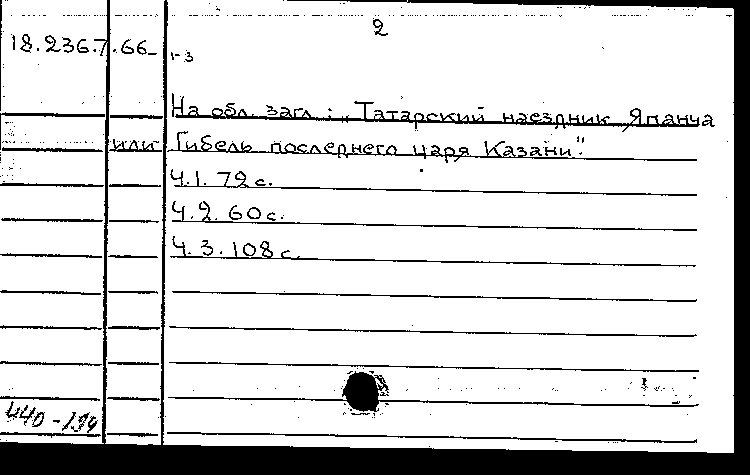 2
18.236.7.66-
1-3
На обл. загл.: „Татарский наездник Япанча
или Гибель последнего царя Казани".
Ч.1. 72 с.
Ч.2. 60 с.
Ч.3. 108 с.
440-194